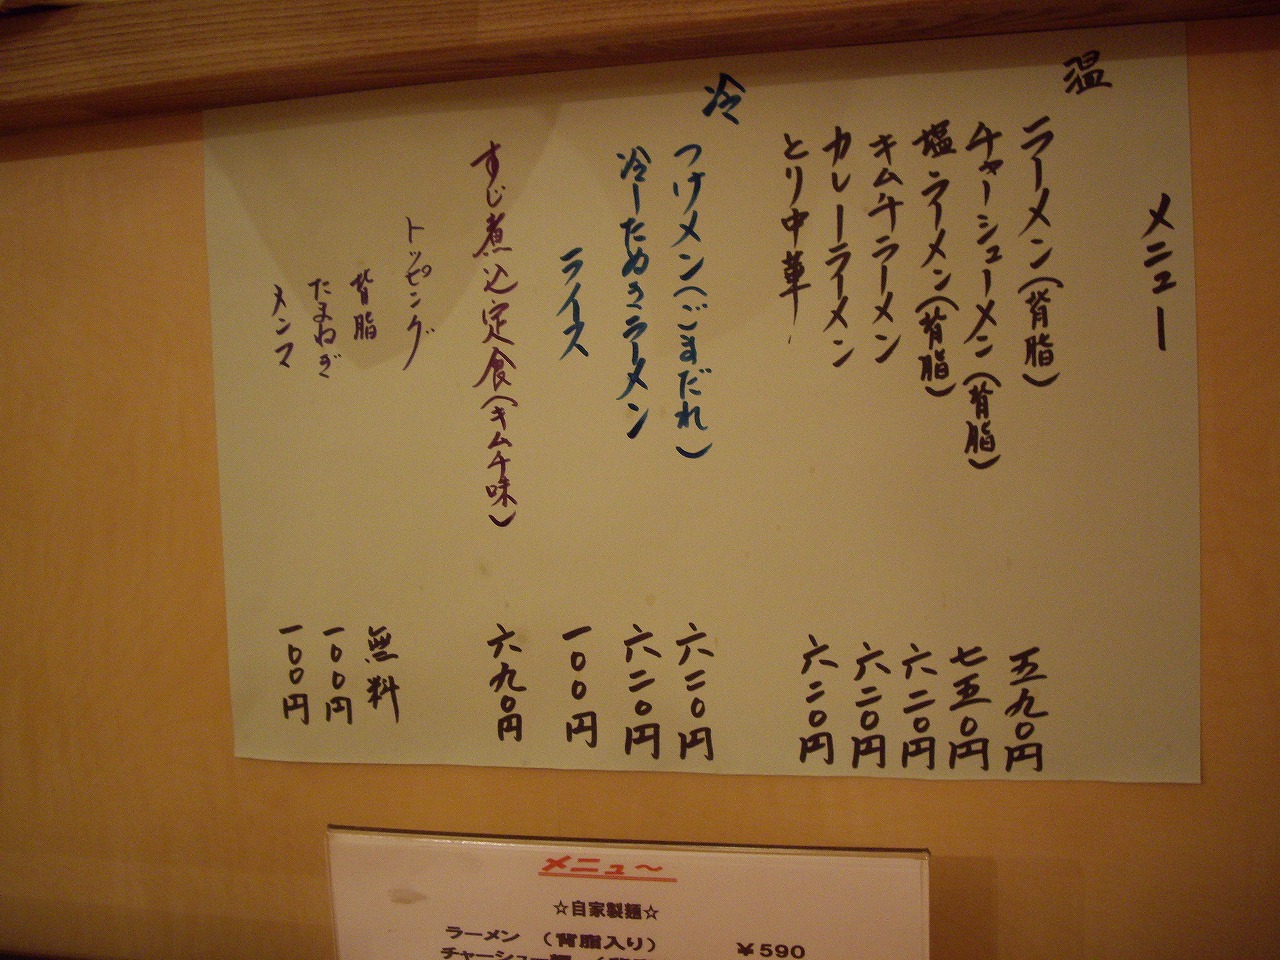 メニュー
温
ラーメン(背脂) 五九〇円
チャーシューメン(背脂) 七五〇円
塩ラーメン(背脂) 六二〇円
キムチラーメン 六二〇円
カレーラーメン 六二〇円
とり中華
冷
つけメン(ごまだれ) 六二〇円
冷ーたぬきラーメン 六二〇円
ライス 一〇〇円
すじ煮込定食(キムチ味) 六九〇円
トッピング
背脂 無料
たまねぎ 一〇〇円
メンマ 一〇〇円
メニュ〜
☆自家製麺☆
ラーメン (背脂入り) ¥590
チャーシュー麺